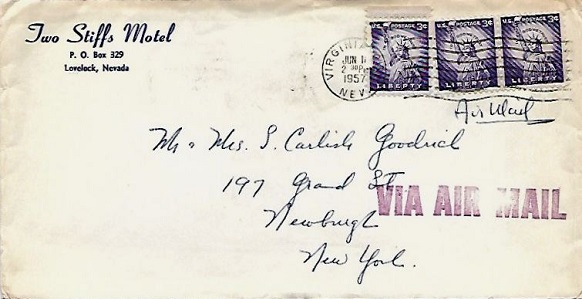 Two Stiffs Motel
P. O. Box 329
Lovelock, Nevada
U.S. POSTAGE 3¢
U.S. POSTAGE 3¢
U.S. POSTAGE 3¢
LIBERTY
LIBERTY
LIBERTY
VIRGINIA
JUN
2
1957
NEV.
Air Mail
Mr & Mrs. S. Carlisle Goodrich
197 Grand St.
Newburgh
New York.
VIA AIR MAIL